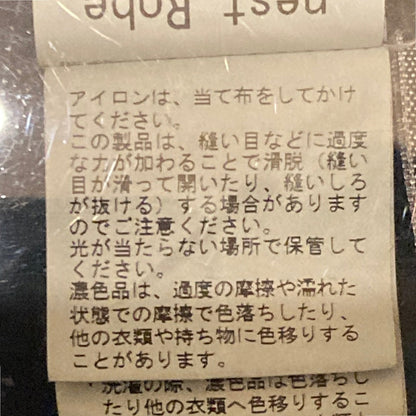 nest Robe
アイロンは、当て布をしてかけ
てください。
この製品は、縫い目などに過度
な力が加わることで滑脱（縫い
目が滑って開いたり、縫いしろ
が抜ける）する場合があります
のでご注意ください。
光が当たらない場所で保管して
ください。
濃色品は、過度の摩擦や濡れた
状態での摩擦で色落ちしたり、
他の衣類や持ち物に色移りする
ことがあります。
・洗濯の際、濃色品は色落ちし
たり他の衣類へ色移りするこ